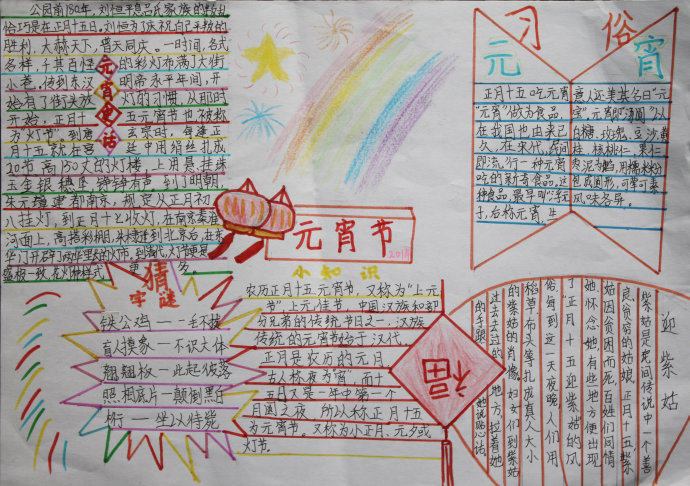 公园前180年,刘恒平息吕氏家族的叛乱
恰巧是在正月十五日,刘恒为了庆祝自己平叛的
胜利,大赦天下,普天同庆。一时间,各式
各样,千其百怪的彩灯布满了大街
小巷。传到东汉明帝永平年间,开
始有了街头放灯的习惯,从那时
开始,正月十五元宵节也被称
为"灯节"。到唐玄宗时,每逢正
月十五就在宫廷中用绢丝扎成
20节高150丈的灯楼,上用
玉金银穗
朱元璋建都南京,规定从正月初
八挂灯,到正月十七收灯,在南京秦淮
河面上,
元宵夜话
元宵节
习俗
元宵
正月十五吃元宵
"元宵"做为食品,
在我国也由来已
久,在宋代,民间
即流行一种元宵
吃的新奇食品,这
种食品,最早叫"浮元
子,后称元宵,生
意人还美其名曰"元
宝"。元宵即"汤圆"以
白糖、玫瑰、豆沙、黄
桂、核桃仁、果仁
枣泥等馅,用糯米粉
包成圆形,可荤可素
风味各异。
猜字谜
铁公鸡——一毛不拔
盲人摸象——不识大体
翘翘板——此起彼落
照相底片——颠倒黑白
桥——坐以待毙
小知识
农历正月十五元宵节,又称为"上元
节",上元佳节,中国汉族和部
分兄弟的传统节日之一,汉族
传统的元宵节始于汉代,
正月是农历的元月
古人称夜为"宵"而十
五日又是一年中第一个
月圆之夜,所以称正月十五
为元宵节。又称为小正月、元夕或
灯节。
福
迎紫姑
紫姑是民间传说中一个善
良、贫穷的姑娘。正月十五,紫
姑因贫困而死。百姓们同情
她、怀念她,有些地方便出现
了正月十五迎紫姑的风
俗。每到这一天夜晚,人们用
稻草、布头等扎成真人大小
的紫姑的肖像。妇女们到紫姑